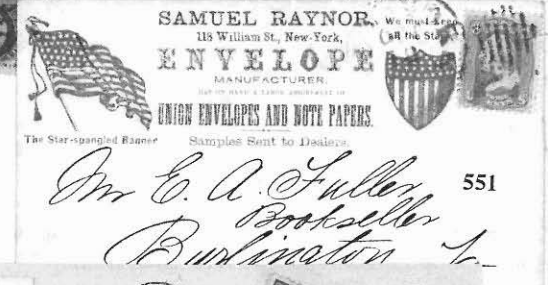 SAMUEL RAYNOR,
118 William St., New-York,
ENVELOPE
MANUFACTURER.
UNION ENVELOPES AND NOTE PAPERS.
Samples Sent to Dealers.
The Star-spangled Banner
We must keep
all the Stars
Mr E. A. Fuller
Bookseller
Burlington
551